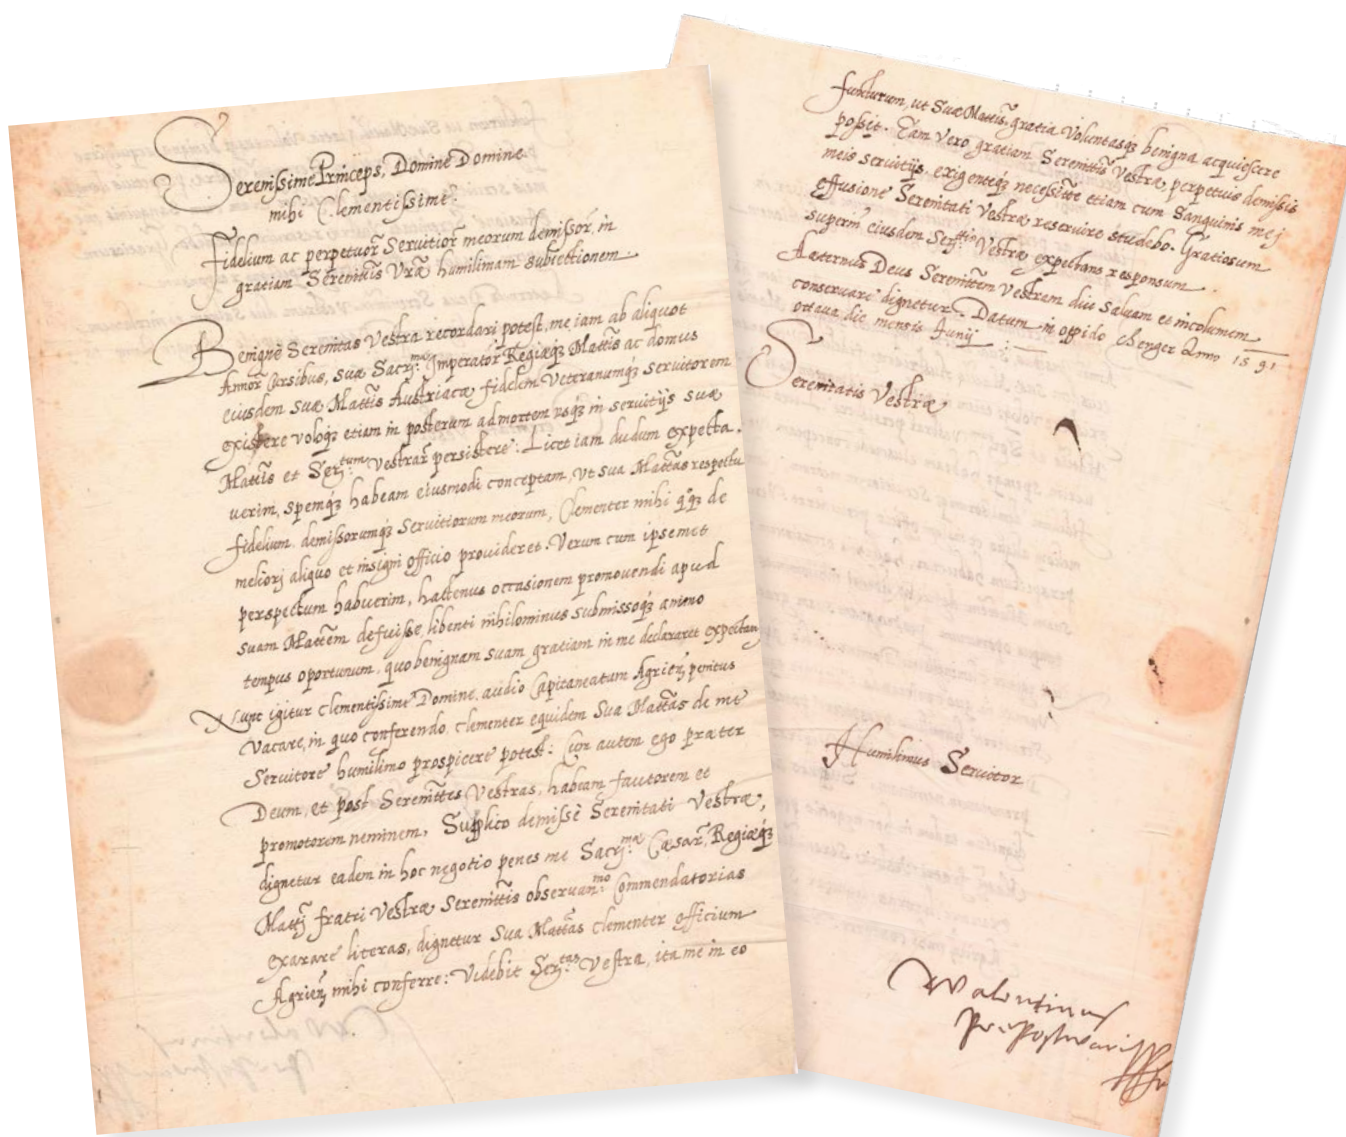 Serenissime Princeps, Domine Domine
mihi Clementissime.
Fidelium ac perpetuor̃ Servitior̃ meorum demissor̃, in
gratiam Serenitt̃is Vr̃æ humilimam subiectionem.
Benignè Serenitas Vestra recordari potest, me iam ab aliquot
Annor̃ Cursibus, suæ Sacr: mæ Imperator̃ Regiæqȝ Matt̃is ac domus
eiusdem suæ Matt̃is Austriacæ fidelem Veteranumqȝ servitorem
existere voloqȝ etiam in posterum ad mortem usqȝ in servitijs suæ
Matt̃is et Ser: tum Vestrar̃ persistere: Licet iam dudum expecta.
uerim, spemqȝ habeam eiusmodi conceptam, Vt sua Matt̃as respectu
fidelium, demissorumqȝ Servitiorum meorum, Clementer mihi qȝqȝ de
meliorj aliquo et insigni officio provideret. Verum cum ipsemet
perspectum habuerim, hactenus occasionem promovendi apud
suam Matt̃em defuisse, libenti nihilominus submissoqȝ animo
tempus oportunum, quo benignam suam gratiam in me declararet expectavj
Nunc igitur Clementissime Domine, audio Capitaneatum Agrien̄ penitus
Vacare, in quo conferendo, clementer equidem Sua Matt̃as de me
Servitore humilimo prospicere potest: Cum autem ego præter
Deum, et post Serenitt̃es Vestras, habeam fautorem et
promotorem neminem, Supplico demissè Serenitati Vestræ,
dignetur eadem in hoc negotio penes me Sacr: mæ Cæsar̃, Regiæqȝ
Mattj̃ fratri Vestræ Serenitt̃is observan: mo Commendatorias
exarare literas, dignetur Sua Matt̃as clementer officium
Agrien̄ mihi conferre: Videbit Ser: tas Vestra, ita me in eo
functurum, ut Suæ Matt̃is gratia Voluntasqȝ benigna acquiescere
possit. Eam vero gratiam Serenitt̃is Vestræ, perpetuis demissis
meis servitijs, exigenteqȝ necessitate etiam cum Sanguinis mej
effusione Serenitati Vestræ reservire studebo. Gratiosum
superm̄ eiusdem Ser: ttis Vestræ expectans responsum.
Aeternus Deus Serenitt̃em Vestram diu Salvam et incolumem
conservare dignetur. Datum in opido Chenger Anno 1591
octava die mensis Junij
Serenitatis Vestræ
Humilimus Servitor
Valentinus
Prepostwarij